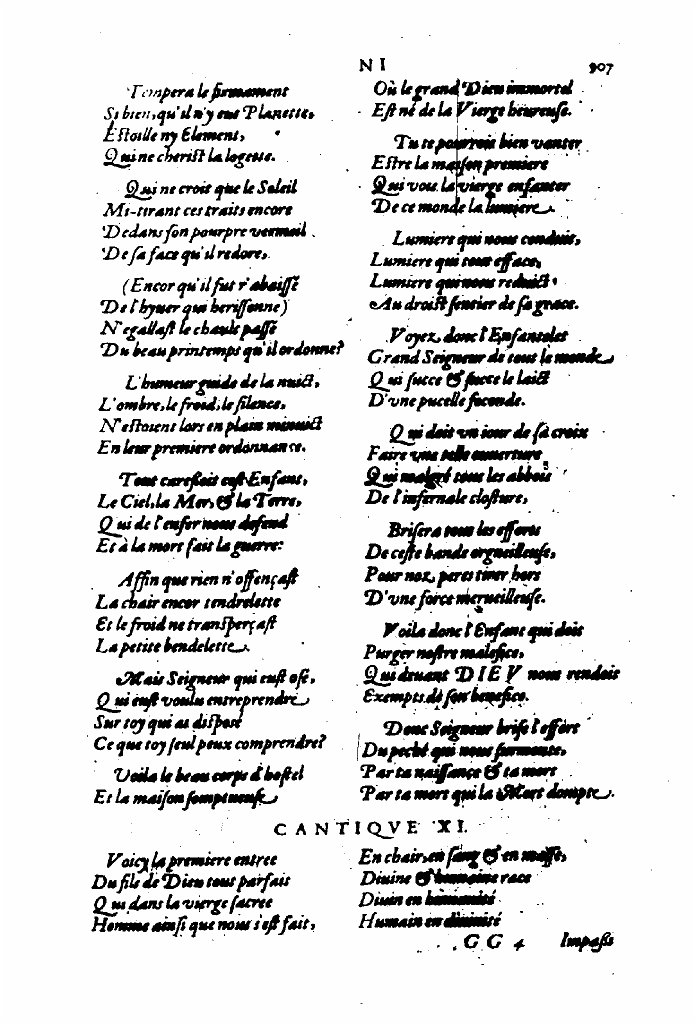 NI 907
Tempera le firmament
Si bien, qu'il n'y eut Planette,
Estoille ny Element,
Qui ne cherist la logette.
Qui ne croit que le Soleil
Mi-tirant ces traits encore
Dedans son pourpre vermeil
De sa face qu'il redore,
(Encor qu'il fut r'abaissé
De l'hyuer qui herissonne)
N'egallast le chault passé
Du beau printemps qu'il ordonne?
L'humeur guide de la nuict,
L'ombre, le froid, le silence,
N'estoient lors en plain minuict
En leur premiere ordonnance.
Tout caressoit cest Enfant,
Le Ciel, la Mer, & la Terre,
Qui de l'enfer nous defend
Et à la mort fait la guerre:
Affin que rien n'offençast
La chair encor tendrelette
Et le froid ne transperçast
La petite bendelette.
Mais Seigneur qui eust osé,
Qui eust voulu entreprendre
Sur toy qui as disposé
Ce que toy seul peux comprendre?
Voila le beau corps d'hostel
Et la maison somptueuse
Où le grand Dieu immortel
Est né de la Vierge heureuse.
Tu te pourrois bien vanter
Estre la maison premiere
Qui vois la vierge enfanter
De ce monde la lumiere.
Lumiere qui nous conduit,
Lumiere qui tout efface,
Lumiere qui nous reduict
Au droict sentier de sa grace.
Voyez donc l'Enfantelet
Grand Seigneur de tout le monde
Qui succe & succe le laict
D'vne pucelle feconde.
Qui doit vn iour de sa croix
Faire vne telle ouuerture
Qui malgré tous les abbois
De l'infernale closture,
Brisera tous les efforts
De ceste bande orgueilleuse,
Pour noz peres tirer hors
D'vne force merueilleuse.
Voila donc l'Enfant qui doit
Purger nostre malefice,
Qui deuant DIEV nous rendoit
Exempts de son benefice.
Donc Seigneur brise l'effort
Du peché qui nous surmonte,
Par ta naissance & ta mort
Par ta mort qui la Mort dompte.
CANTIQVE XI.
Voicy la premiere entree
Du fils de Dieu tout parfait
Qui dans la vierge sacree
Homme ainsi que nous s'est fait,
En chair, en sang & en masse,
Diuine & humaine race
Diuin en humanité
Humain en diuinité
GG 4 Impassis